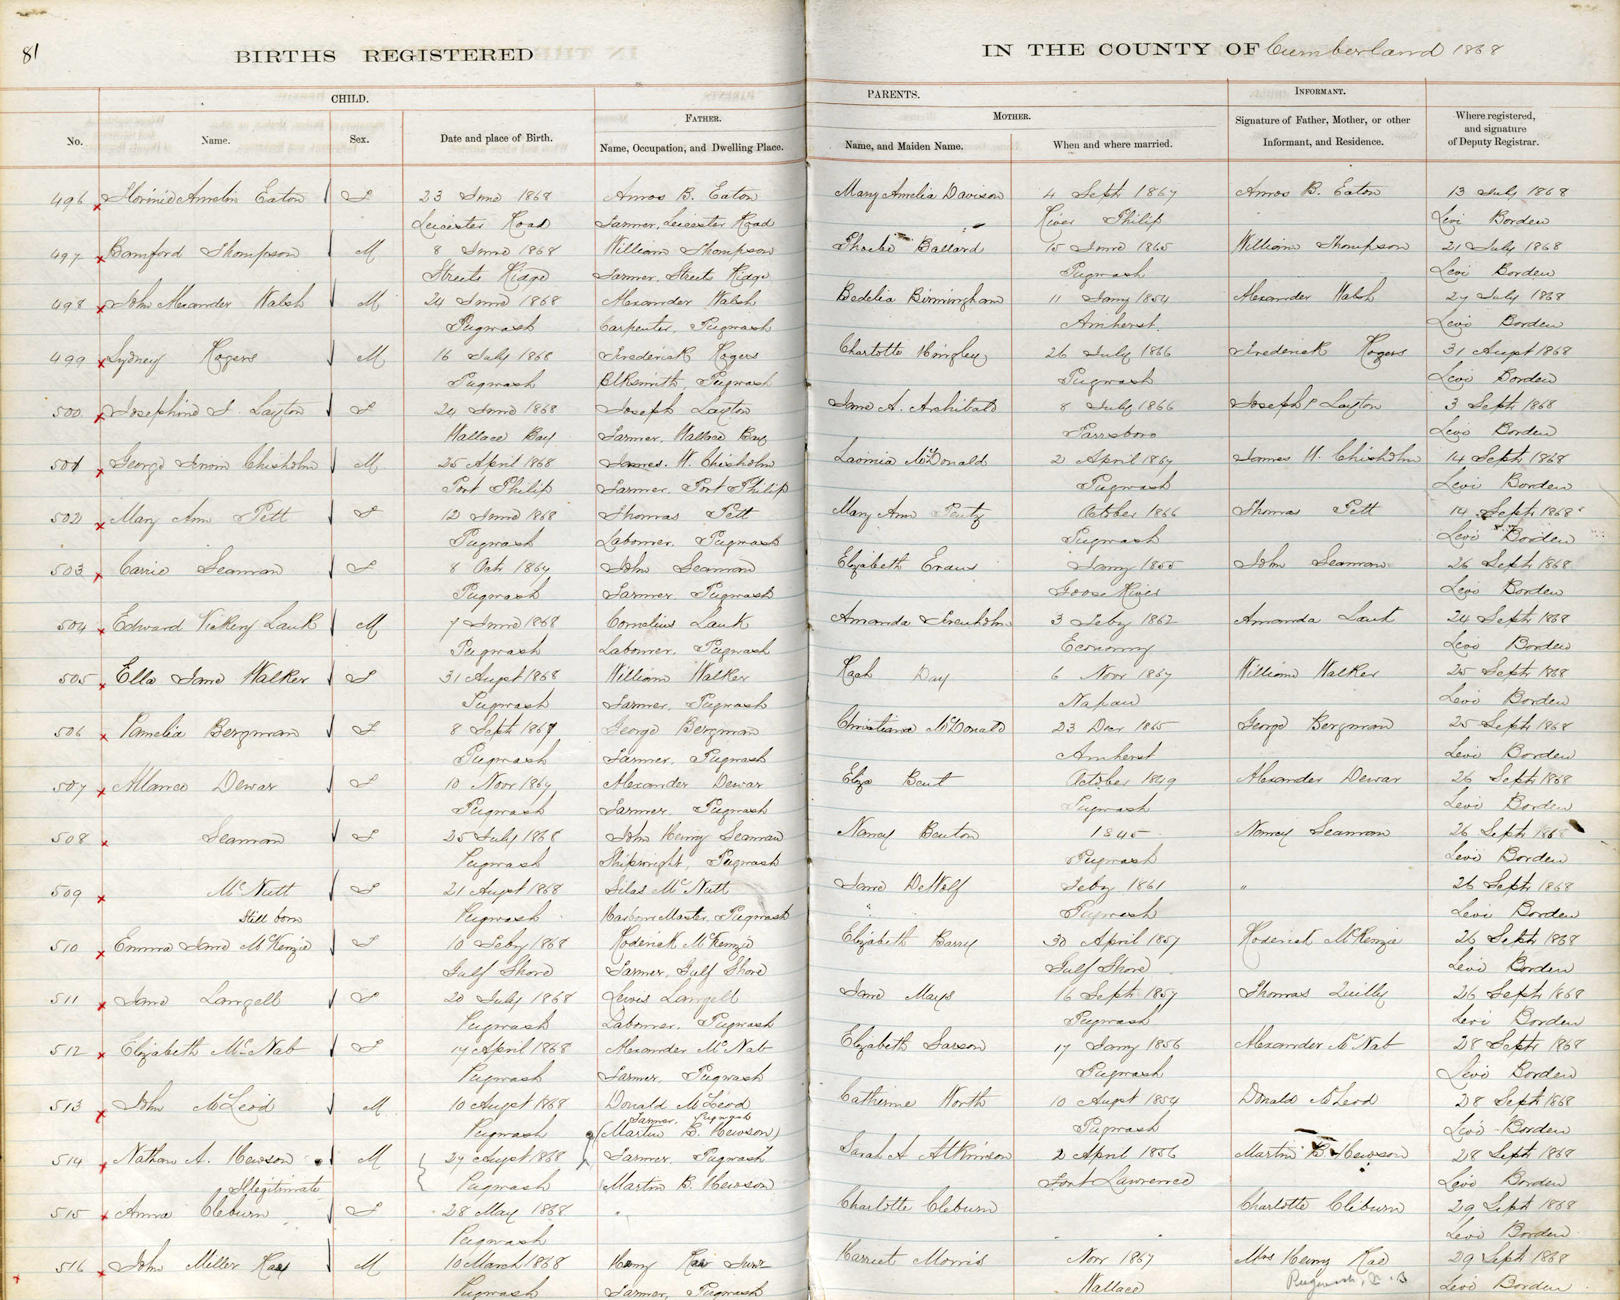 81
BIRTHS REGISTERED
IN THE COUNTY OF Cumberland 1868
CHILD.
PARENTS.
INFORMANT.
No.
Name.
Sex.
Date and place of Birth.
FATHER.
Name, Occupation, and Dwelling Place.
MOTHER.
Name, and Maiden Name.
When and where married.
Signature of Father, Mother, or other
Informant, and Residence.
Where registered,
and signature
of Deputy Registrar.
496 Amelia Eaton F 23 June 1868 Amos B. Eaton Mary Amelia Davison 4 Sept 1867 Amos B. Eaton 13 July 1868
Leicester Road Farmer, Leicester Road River Philip Levi Borden
497 Bamford Thompson M 8 June 1868 William Thompson Phoebe Ballard 15 June 1865 William Thompson 21 July 1868
Streets Ridge Farmer, Streets Ridge Pugwash Levi Borden
498 John Alexander Walsh M 24 June 1868 Alexander Walsh Bedelia Birmingham 11 Jany 1854 Alexander Walsh 27 July 1868
Pugwash Carpenter, Pugwash Amherst. Levi Borden
499 Sydney Rogers M 16 July 1868 Frederick Rogers Charlotte Hingley 26 July 1866 Frederick Rogers 31 Augst 1868
Pugwash Blksmith, Pugwash Pugwash Levi Borden
500 Josephine F. Layton F 24 June 1868 Joseph Layton Jane A. Archibald 8 July 1866 Joseph Layton 3 Sept 1868
Wallace Bay Farmer, Wallace Bay Parrsboro Levi Borden
501 George Irvin Chisholm M 25 April 1868 James W. Chisholm Lavinia McDonald 2 April 1867 James W. Chisholm 14 Sept 1868
Port Philip Farmer, Port Philip Pugwash Levi Borden
502 Mary Ann Pett F 12 June 1868 Thomas Pett Mary Ann Peutz October 1866 Thomas Pett 14 Sept 1868
Pugwash Labourer, Pugwash Pugwash Levi Borden
503 Carrie Seaman F 8 Oct 1867 John Seaman Elizabeth Evans Jany 1855 John Seaman 26 Sept 1868
Pugwash Farmer, Pugwash Goose River Levi Borden
504 Edward Vickery Lauk M 7 June 1868 Cornelius Lauk Amanda Trenholm 3 Feby 1862 Amanda Lauk 24 Sept 1868
Pugwash Labourer, Pugwash Economy Levi Borden
505 Ella Jane Walker F 31 Augst 1868 William Walker Day 6 Novr 1867 William Walker 25 Sept 1868
Pugwash Farmer, Pugwash Napan Levi Borden
506 Pamelia Bergman F 8 Sept 1867 George Bergman Christiana McDonald 23 Decr 1865 George Bergman 25 Sept 1868
Pugwash Farmer, Pugwash Amherst Levi Borden
507 Dewar F 10 Novr 1867 Alexander Dewar Eliza Bent October 1849 Alexander Dewar 26 Sept 1868
Pugwash Farmer, Pugwash Pugwash Levi Borden
508 Seaman F 25 July 1868 John Henry Seaman Nancy Benton 1845 Nancy Seaman 26 Sept 1868
Pugwash Shipwright, Pugwash Pugwash Levi Borden
509 McNutt F 21 Augst 1868 Silas McNutt Jane DeWolf Feby 1861 " 26 Sept 1868
Still born Pugwash Harbour Master, Pugwash " Pugwash Levi Borden
510 Emma Jane McKenzie F 10 Feby 1868 Roderick McKenzie Elizabeth Barry 30 April 1857 Roderick McKenzie 26 Sept 1868
Gulf Shore Farmer, Gulf Shore Gulf Shore Levi Borden
511 Jane Langell F 20 July 1868 Lewis Langell Jane Mays 16 Sept 1857 Thomas Quilly 26 Sept 1868
Pugwash Labourer, Pugwash Pugwash Levi Borden
512 Elizabeth McNab F 14 April 1868 Alexander McNab Elizabeth Larson 17 Jany 1856 Alexander McNab 28 Sept 1868
Pugwash Farmer, Pugwash Pugwash Levi Borden
513 John McLeod M 10 Augst 1868 Donald McLeod Catherine North 10 Augst 1854 Donald McLeod 28 Sept 1868
Farmer, Pugwash
Pugwash (Martin B. Hewson) Pugwash Levi Borden
514 Nathan A. Hewson M 27 Augst 1868 Farmer, Pugwash Sarah A Atkinson 2 April 1856 Martin B Hewson 28 Sept 1868
Illegitimate Pugwash Martin B. Hewson Fort Lawrence Levi Borden
515 Anna Cleburn F 28 May 1868 " Charlotte Cleburn Charlotte Cleburn 29 Sept 1868
Pugwash Levi Borden
516 John Miller Rae M 10 March 1868 Henry Rae Junr Harriet Morris Novr 1867 Mrs Henry Rae 29 Sept 1868
Pugwash Farmer, Pugwash Wallace Pugwash, Levi Borden